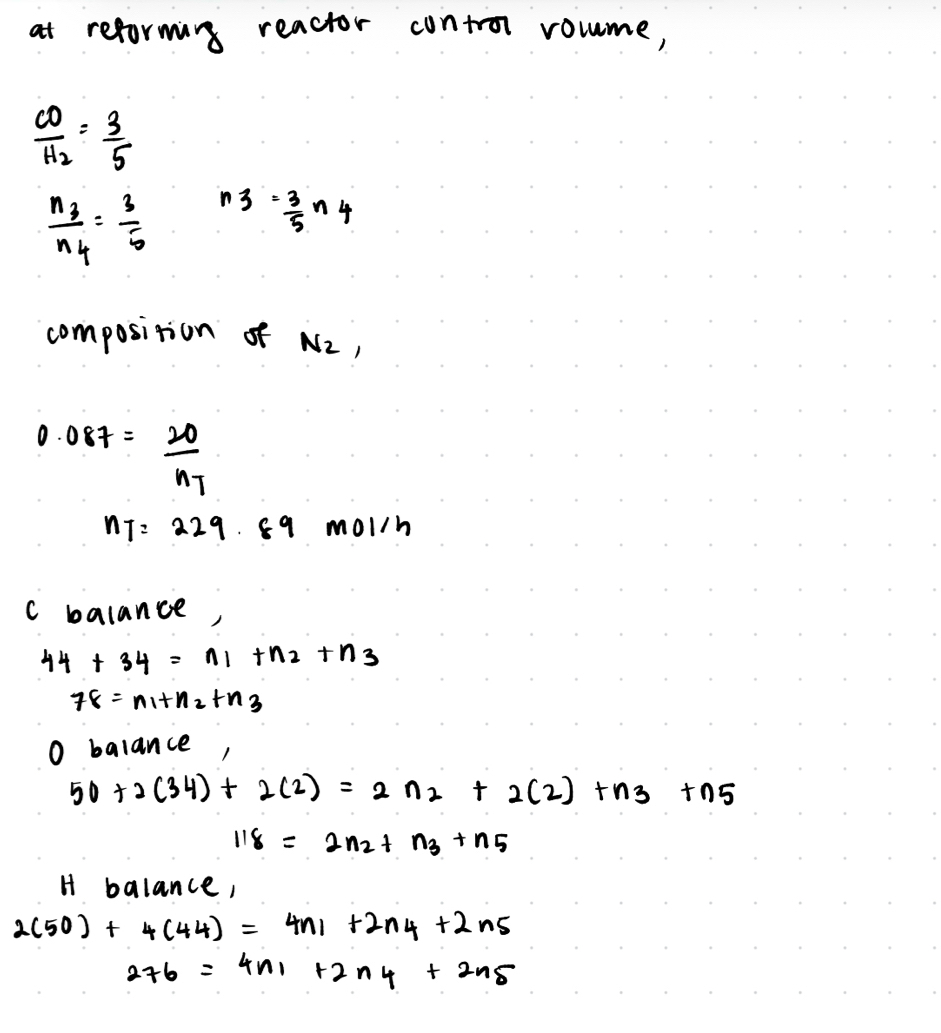 at reforming reactor control volume,
CO/H2 = 3/5
n3/n4 = 3/5 n3 = 3/5 n4
composition of N2,
0.087 = 20/nT
nT = 229.89 mol/h
C balance,
44 + 34 = n1 + n2 + n3
78 = n1+n2+n3
O balance,
50 + 2(34) + 2(2) = 2n2 + 2(2) + n3 + n5
118 = 2n2 + n3 + n5
H balance,
2(50) + 4(44) = 4n1 + 2n4 + 2n5
276 = 4n1 + 2n4 + 2n5